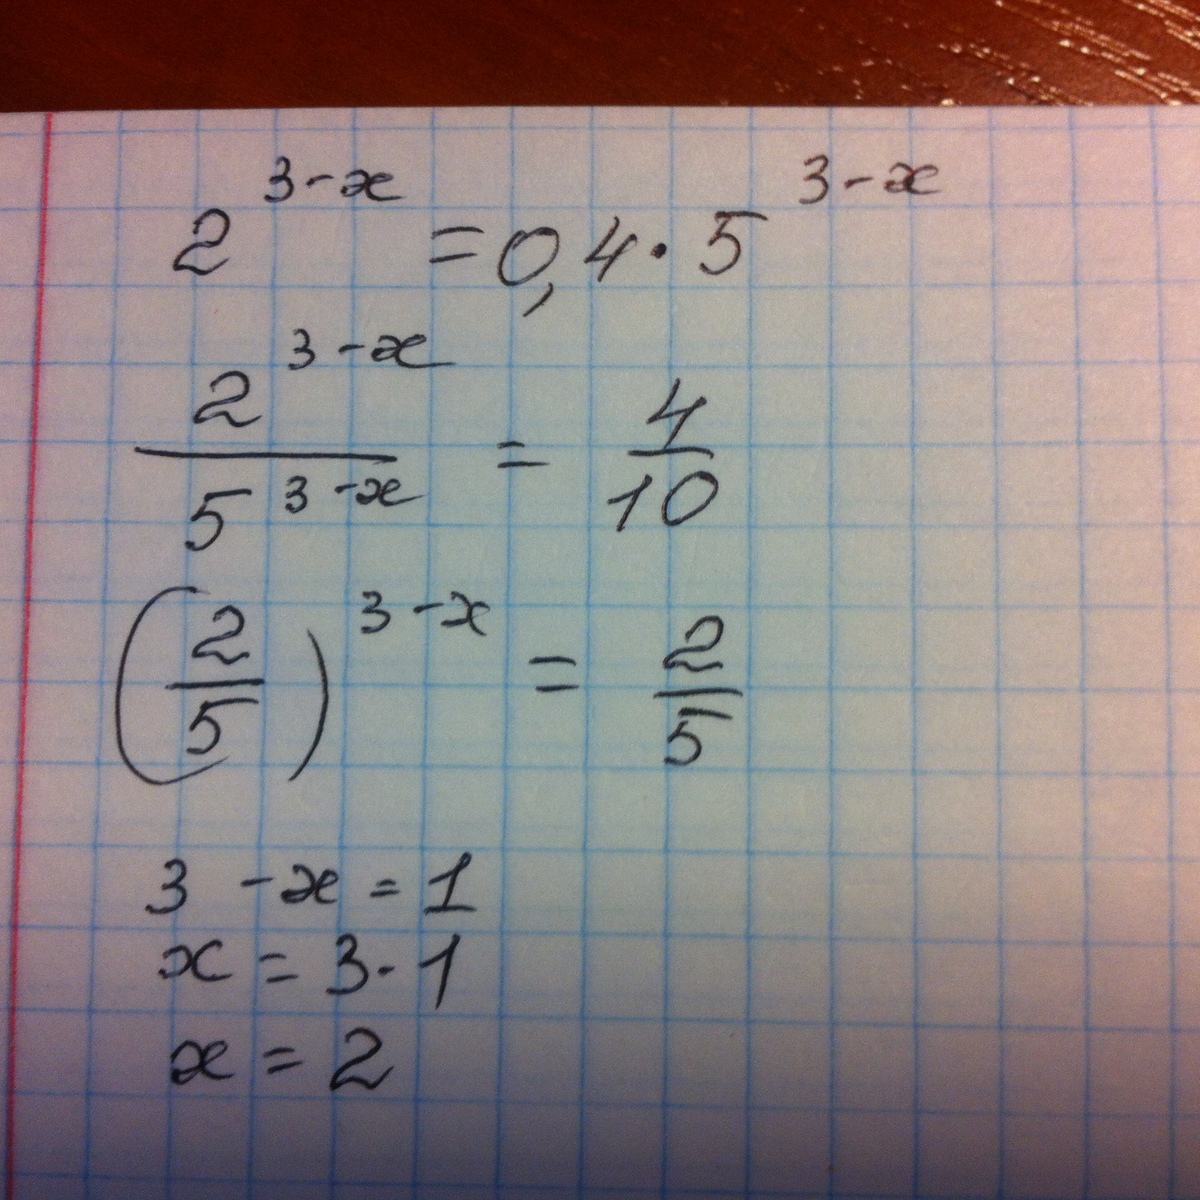 2^(3-x) = 0,4 · 5^(3-x)
2^(3-x) / 5^(3-x) = 4/10
(2/5)^(3-x) = 2/5
3 - x = 1
x = 3 - 1
x = 2